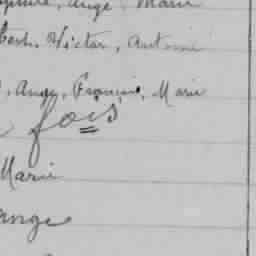 Ange, Marie
Victor, Antoine
, Ange, Francine, Marie
fois
Marie
ange